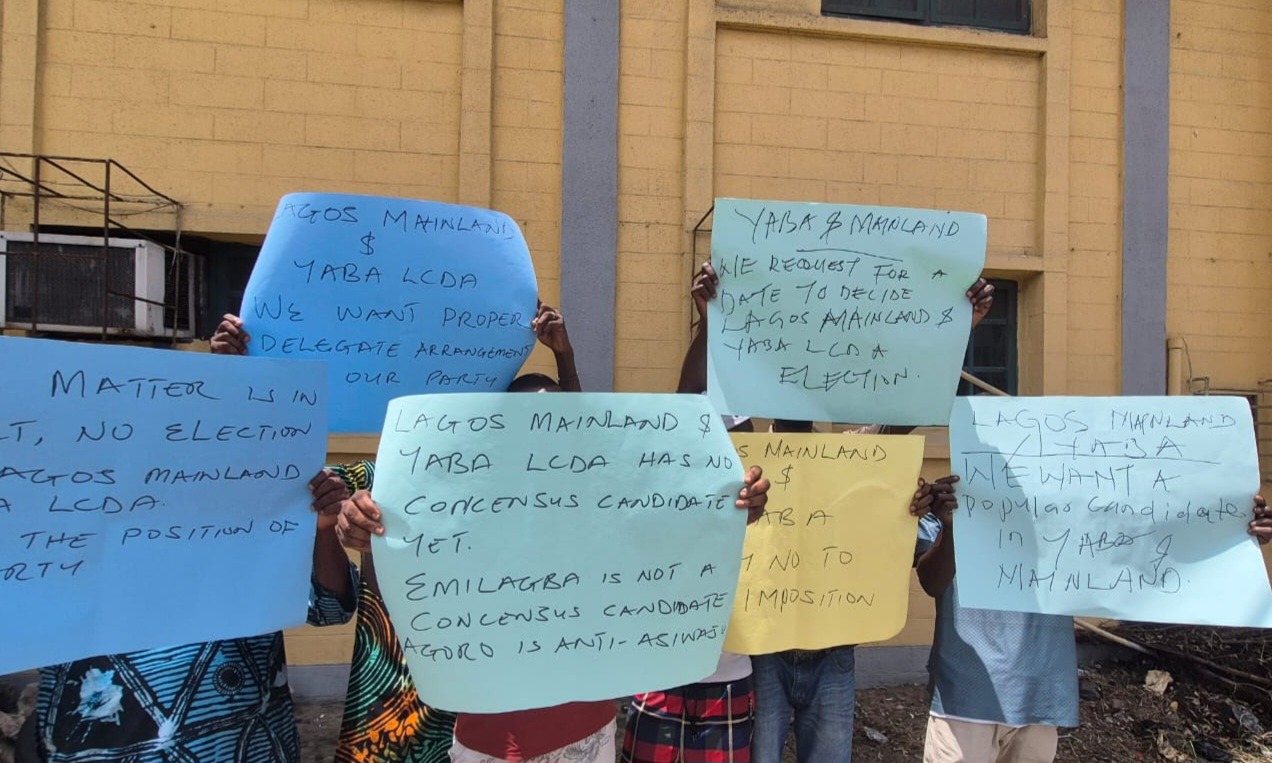 LAGOS MAINLAND
$
YABA LCDA
WE WANT PROPER
DELEGATE ARRANGEMENT
OUR PARTY
YABA $ MAINLAND
WE REQUEST FOR A
DATE TO DECIDE
LAGOS MAINLAND $
YABA LCDA
ELECTION.
MATTER IS IN
NO ELECTION
LAGOS MAINLAND
LCDA.
THE POSITION OF
LAGOS MAINLAND $
YABA LCDA HAS NO
CONCENSUS CANDIDATE
YET.
EMILAGBA IS NOT A
CONCENSUS CANDIDATE
AGORO IS ANTI-ASIWAJU
MAINLAND
$
NO TO
IMPOSITION
LAGOS MAINLAND
/ YABA
WE WANT A
Popular Candidate
in YABA $
MAINLAND.